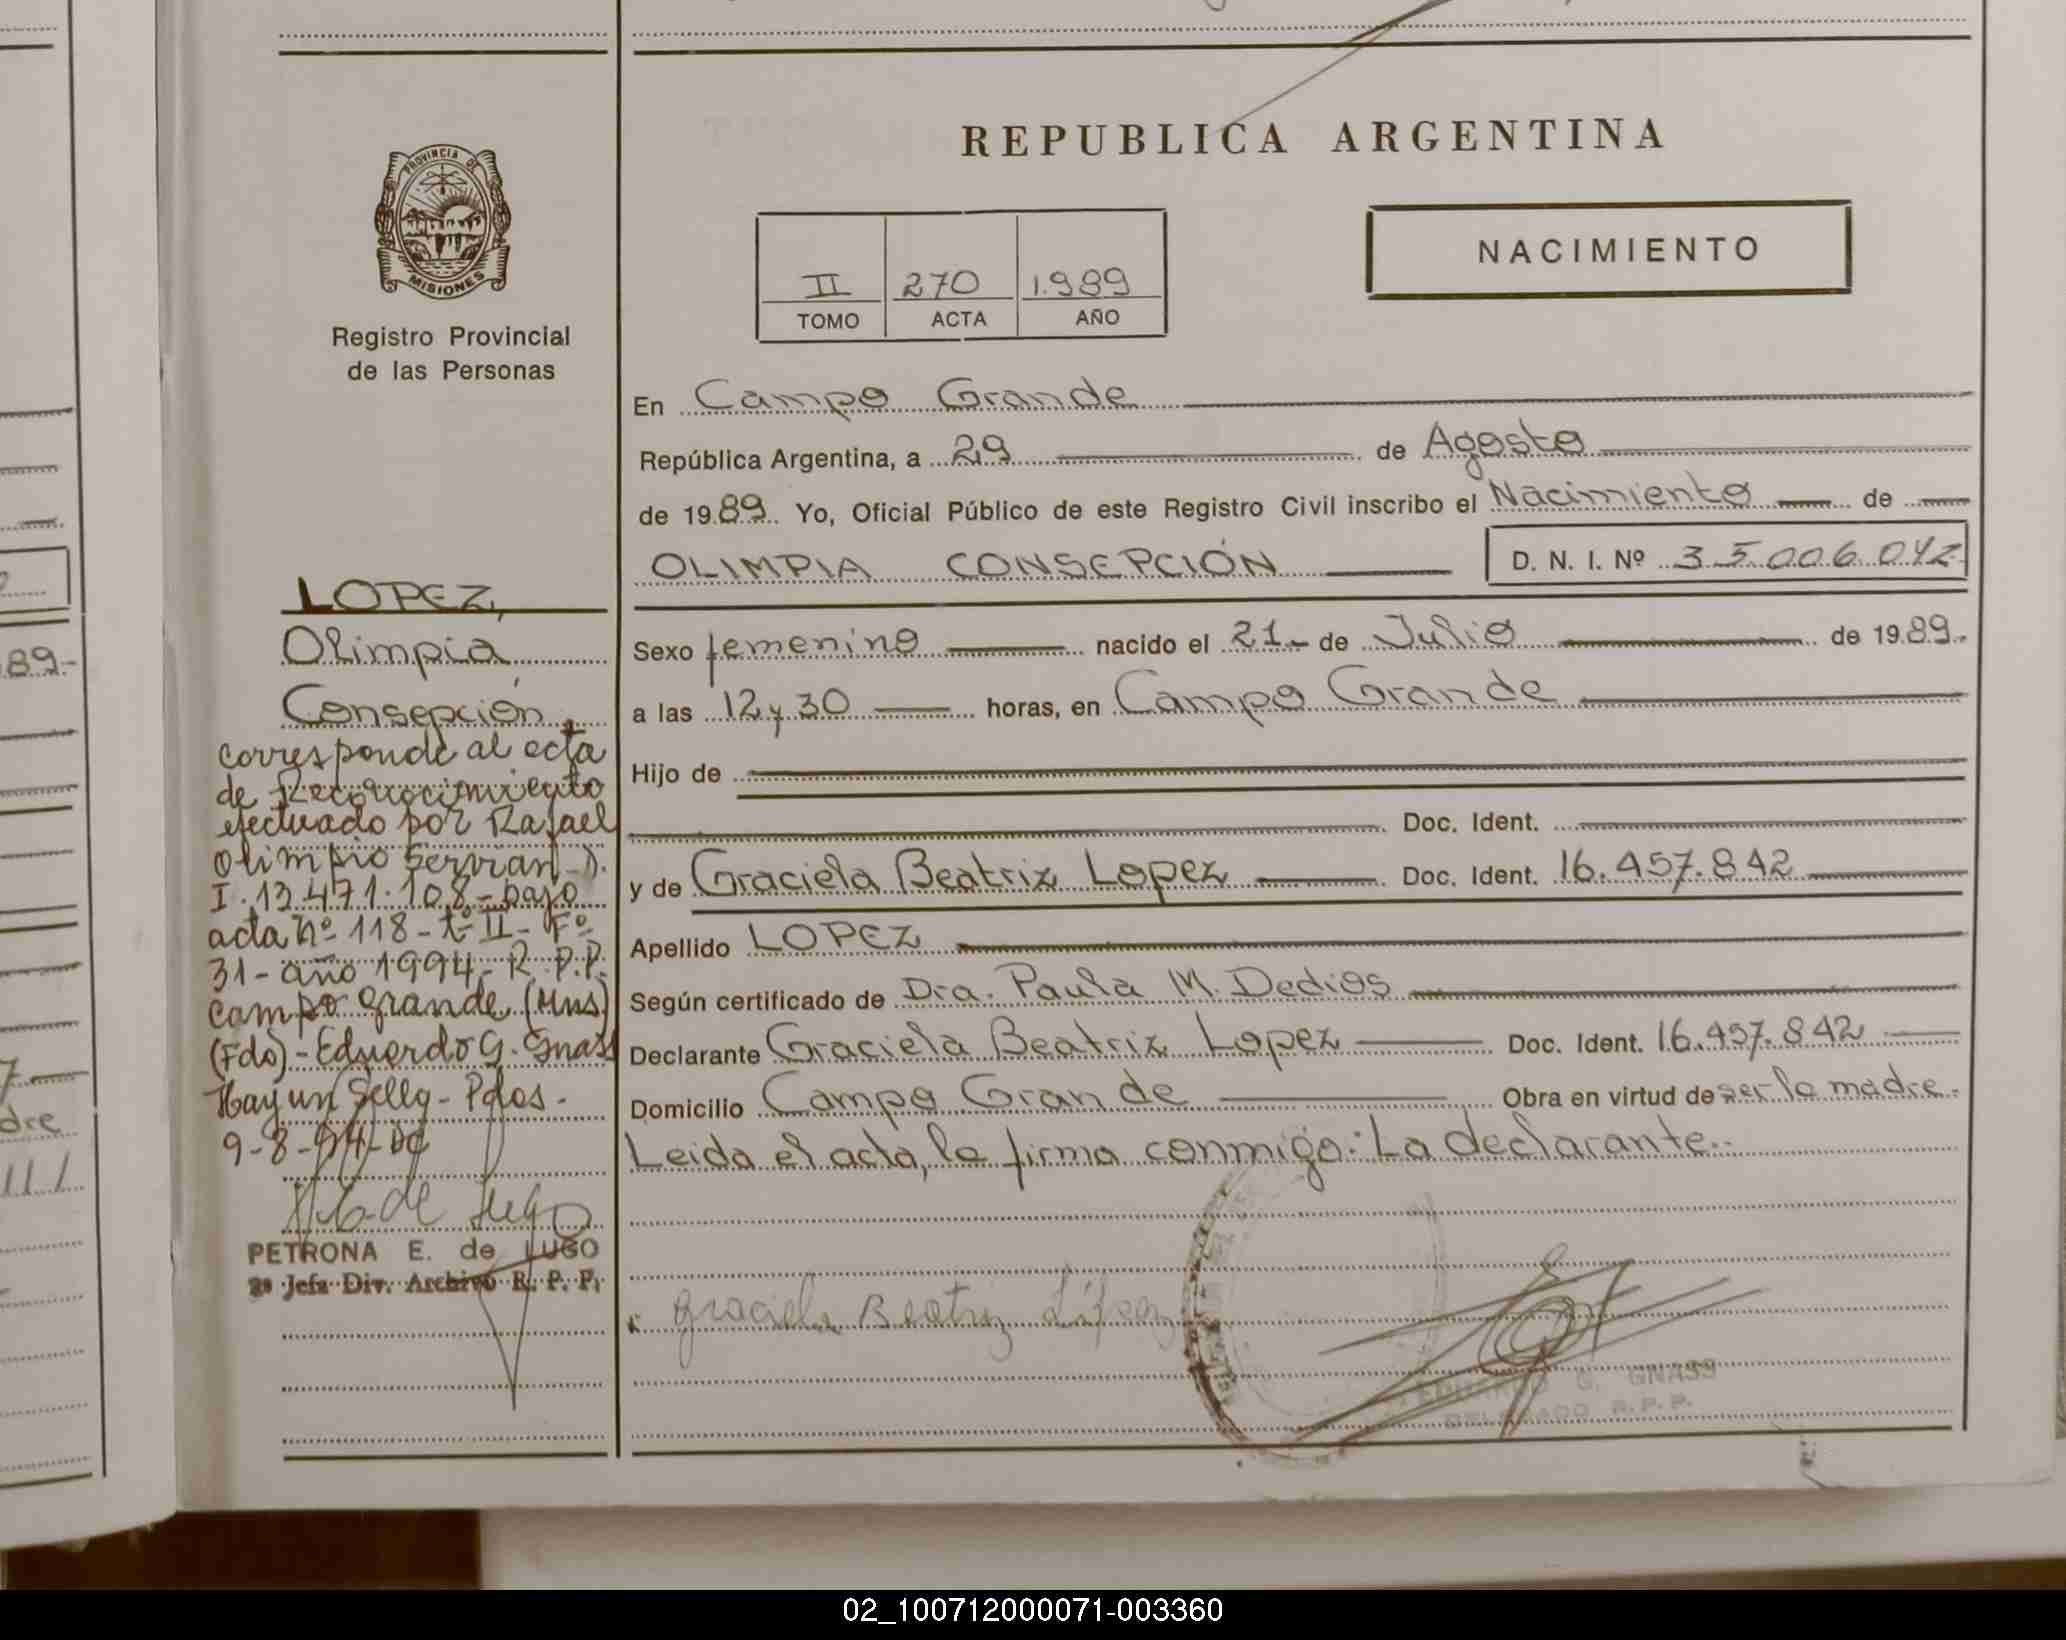 PROVINCIA DE
MISIONES
Registro Provincial
de las Personas
LOPEZ,
Olimpia
Consepción
corresponde al acta
de Reconocimiento
efectuado por Rafael
Olimpio Servian - D.
I. 13.471.108 - bajo
acta nº 118 - tº II - Fº
31 - año 1994 - R.P.P.
Campo Grande (Mns)
(Fdo) - Eduardo G. Gnass
Hay un Sello - Pdas -
9-8-94-
PETRONA E. de LUGO
2ª Jefa Div. Archivo R. P. P.
REPUBLICA ARGENTINA
NACIMIENTO
II 270 1.989
TOMO ACTA AÑO
En Campo Grande
República Argentina, a 29 de Agosto
de 1989. Yo, Oficial Público de este Registro Civil inscribo el Nacimiento de
OLIMPIA CONSEPCIÓN D. N. I. Nº 35.006.042
Sexo femenino nacido el 21 de Julio de 1989.
a las 12 y 30 horas, en Campo Grande
Hijo de
Doc. Ident.
y de Graciela Beatriz Lopez Doc. Ident. 16.457.842
Apellido LOPEZ
Según certificado de Dra. Paula M. Dedios
Declarante Graciela Beatriz Lopez Doc. Ident. 16.457.842
Domicilio Campo Grande Obra en virtud de ser la madre.
Leida el acta, la firma conmigo: La declarante.
Graciela Beatriz López
EDUARDO G. GNASS
DELEGADO R.P.P.
89.-
dre
02_100712000071-003360